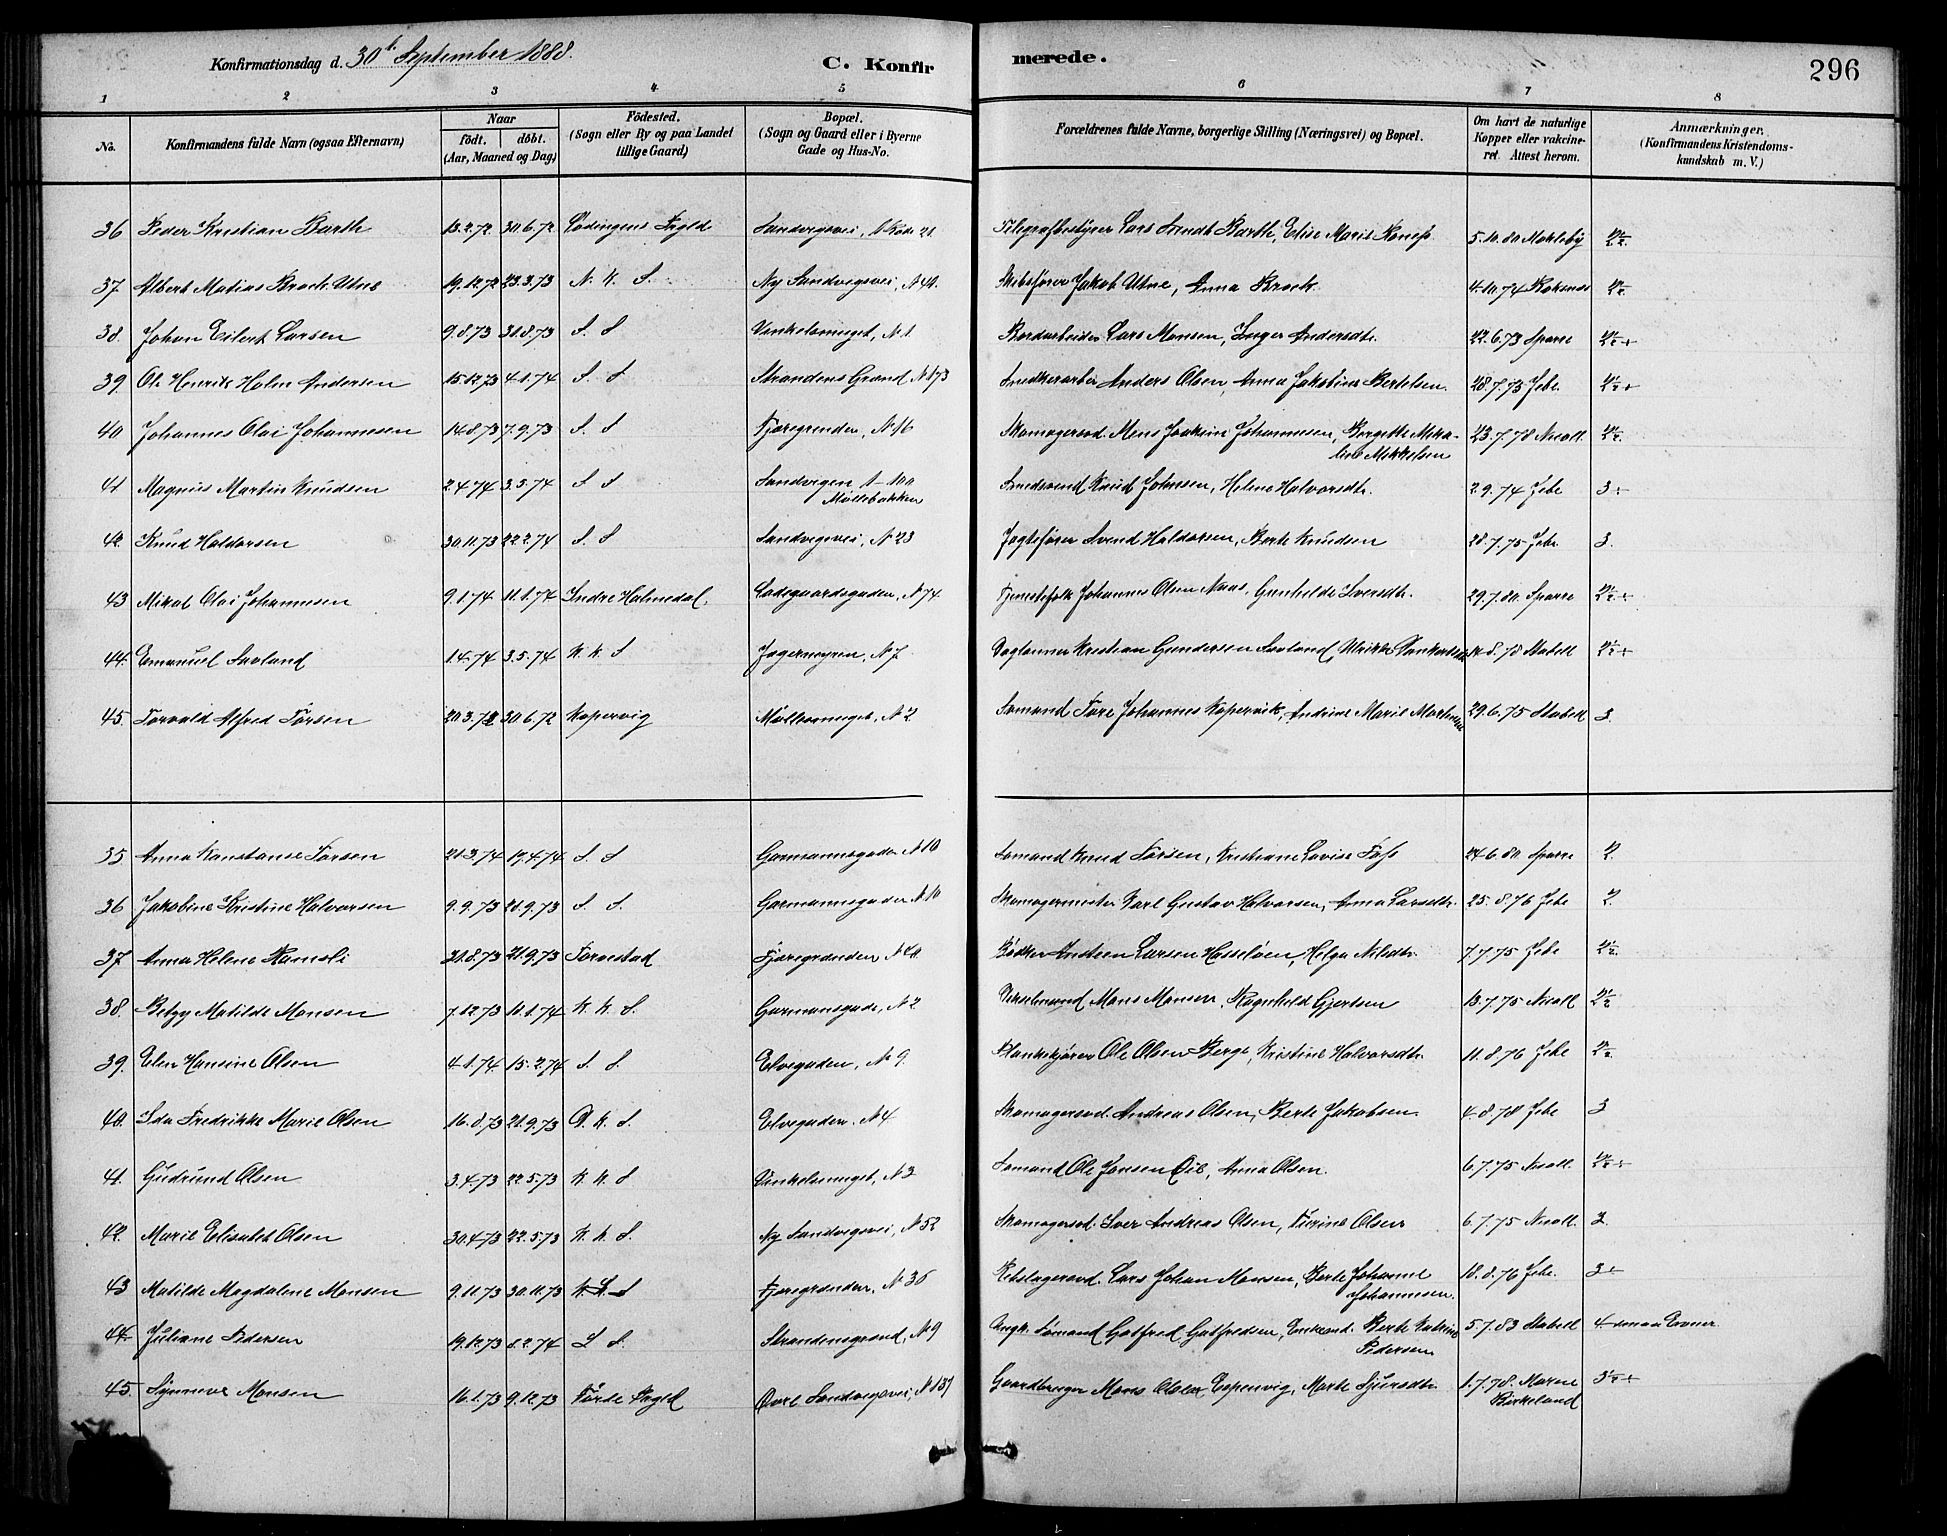 Konfirmationsdag d. 30t September 1888.
C. Konfir
merede.
296
1 2 3 4 5 6 7 8
No.
Konfirmandens fulde Navn (ogsaa Efternavn)
Naar
født. døbt.
(Aar, Maaned og Dag)
Fødested.
(Sogn eller By og paa Landet
tillige Gaard)
Bopæl.
(Sogn og Gaard eller i Byerne
Gade og Hus-No.
Forældrenes fulde Navne, borgerlige Stilling (Næringsvei) og Bopæl.
Om havt de naturlige
Kopper eller vakcine-
ret. Attest herom.
Anmærkninger.
(Konfirmandens Kristendoms-
kundskab m. V.)
36 Peder Kristian Barth 13.2.72 30.6.72 Lødingens Prgld Sandvigsvei, 21 Telegrafbestyrer Lars Arendt Barth, Elise Marie 5.10.80
37 Albert Matias Brock Utne 19.12.72 23.3.73 N. K. S. Ny Sandvigsvei, N 44. Skibsfører Jakob Utne, Anna Brock. 4.10.74
38. Johan Eilert Larsen 9.8.73 31.8.73 S. S Vinkelsmuget, N 1 Bordarbeider Lars Monsen, Inger Andersdtr. 22.6.73 Sparre
39. Ole Henrik Holm Andersen 15.12.73 4.1.74 S. S Strandens Grand N 173 Snedkerarbei Anders Olsen, Anna Jakobine Bertelsen. 28.7.75 Jebe
40 Johannes Olai Johannesen 14.8.73 7.9.73 S. S Fjæregrenden, N 16 Skomagersvd. Mons Joakim Johannesen, Bergitte Mika-
line Mikkelsen 23.7.78 Nicoll.
41 Magnus Martin Knudsen 2.4.74 3.5.74 S S Sandvigen
Møllebakken Smedsvend Knud Johnsen, Helene Halvorsdtr. 2.9.74 Jebe 3 ÷
42. Knud Haldorsen 30.11.73 22.2.74 S. S Sandvigsvei, N 23 Jagtefører Svend Haldorsen, Berte Knudsen 28.7.75 Jebe 3.
43 Mikal Olai Johannesen 9.1.74 11.1.74 Indre Holmedal. Ladegaardsgaden, N 74 Tjenestefolk Johannes Olsen Naas, Gunhilde Iversdtr. 29.7.80. Sparre
44. Emanuel Søvland 1.4.74 3.5.74 K. K. S Jægermyren, N 7 Daglønner Kristian Gundersen Søvland, Ulrikke 78 Stabell
45. Torvald Alfred Torsen 20.3.72 30.6.72 Kopervig Møllesmuget, N 2 Sømand Tore Johannes Kopervik, Andrine Marie 29.6.75 Stabell 3.
35 Anna Konstanse Torsen 21.3.74 19.4.74 S. S Garmannsgaden N 10 Sømand Knud Torsen, Kristiane Lovise 24.6.80 Sparre 2.
36 Jakobine Kristine Halvorsen 9.9.73 21.9.73 S S. Garmannsgaden N 10 Skomagermester Karl Gustav Halvorsen, Anna Larsdtr. 25.8.76 Jebe 2.
37 Anna Helene Ramsli 31.8.73 21.9.73 Torvestad Fjæregrenden N 40 Bødker Andreen Larsen Hasseløen, Helga Nilsdtr. 7.7.75 Jebe
38. Betzy Matilde Monsen 7.12.73 11.1.74 K. K. S. Garmansgade, N 2 Mons Monsen, Ragnhild Gjertsen 13.7.75 Nicoll
39. Elen Hansine Olsen 4.1.74. 15.2.74 S. S. Elvegaden, N 9. Plankekjører Ole Olsen Berge, Kristine Halvorsdtr. 11.8.76 Jebe
40. Ida Fredrikke Marie Olsen 16.8.73 21.9.73 D. K. S. Elvegaden. N 4 Skomagersvd. Andreas Olsen, Berte Jakobsen. 4.8.78 Jebe 3
41. Gudrund Olsen 3.4.73 22.5.73 K. K. S Vinkelsmuget, N 3 Sømand Ole Jansen Anna Olsen. 6.7.75 Nicoll.
42. Marie Elisabet Olsen 30.4.73 22.5.73 K. K. S. Ny Sandvigsvei, N 52 Skomagersvd. Iver Andreas Olsen, Turine Olsen 6.7.75 Nicoll. 2
43 Matilde Magdalene Monsen 9.11.73 30.11.73 Fjæregrenden, N 36 Rebslagersvd. Lars Johan Monsen, Berte Johanne
Johannesen. 18.8.76 Jebe. 3 ÷
44. Juliane Pedersen 19.12.73 8.2.74 S S. Strandensgrand, N 9 Ungk. Sømand Gotfred Gotfredsen, Enkeand. Berte Katrine
Pedersen 5.7.83 Stabell 4 smaa Evner.
45. Synneve Monsen 16.1.73 9.12.73 Førde Prgld Øvre Sandvigsvei, N 137 Gaardbruger Mons Olsen Espenvig, Marte Sjursdtr. 1.7.78. Marne
Birkeland